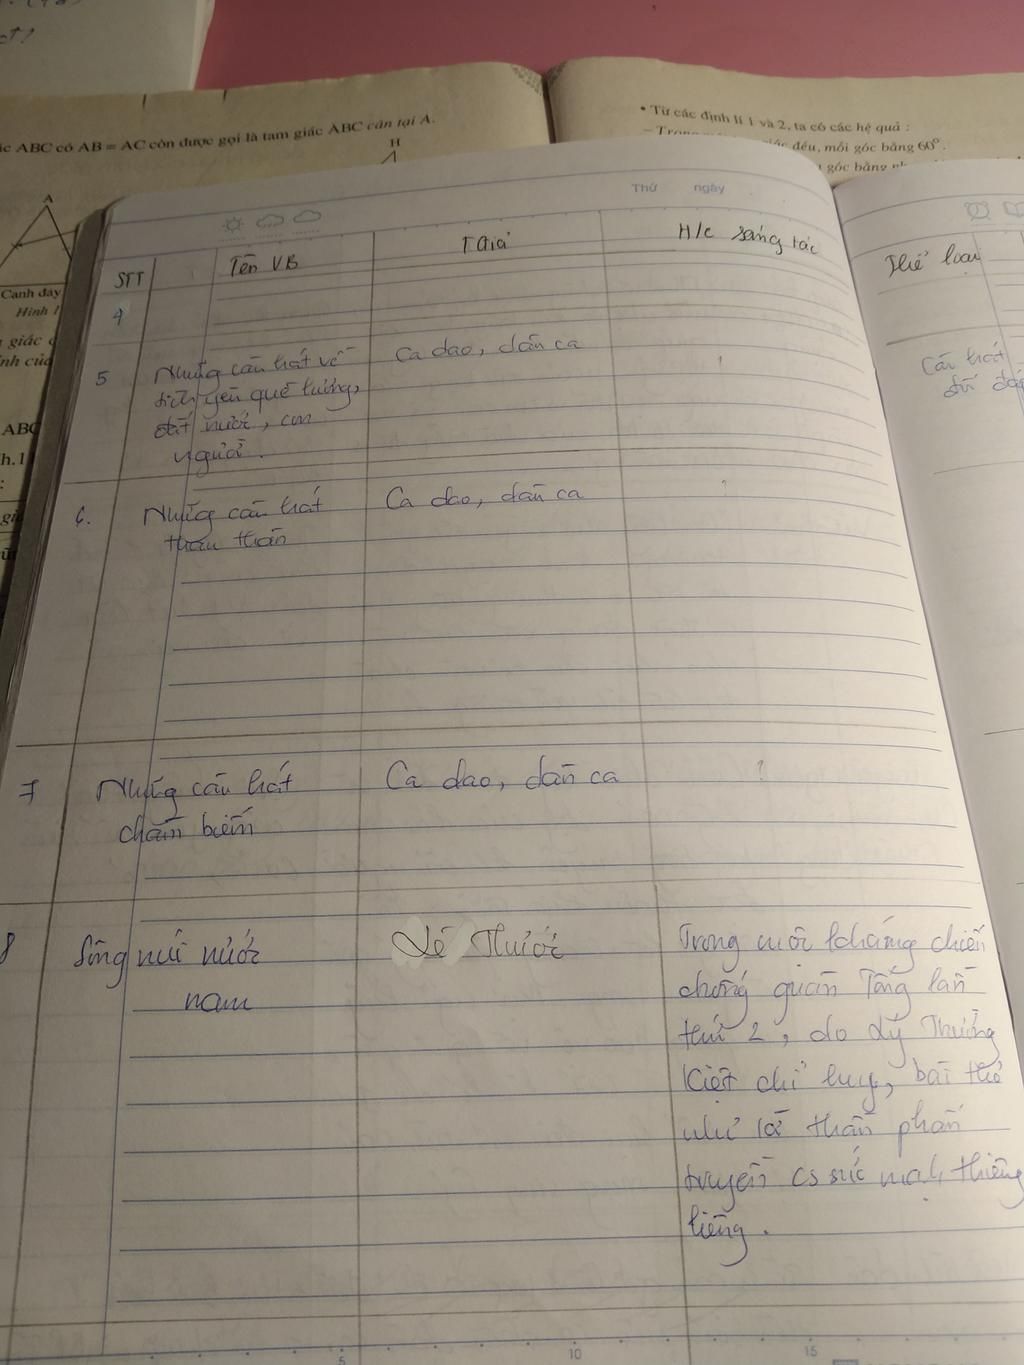 ABC có AB = AC còn được gọi là tam giác ABC cân tại A.
• Từ các định lí 1 và 2, ta có các hệ quả :
đều, mỗi góc bằng 60°.
góc bằng
H
A
Cạnh đáy
Hình
giác
ABC
Thứ ngày
STT Tên VB T Giả H/c sáng tác Thể loại
4
5 Những câu hát về Ca dao, dân ca
tình yêu quê hương,
đất nước, con
người.
Câu hát
đối đáp
6. Những câu hát Ca dao, dân ca ?
than thân
7 Những câu hát Ca dao, dân ca ?
châm biếm
8 Sông núi nước Lê Thước Trong cuộc kháng chiến
nam chống quân Tống lần
thứ 2, do Lý Thường
Kiệt chỉ huy, bài thơ
như là thần phán
truyền cs sức mạh thiêng
liêng.
5 10 15